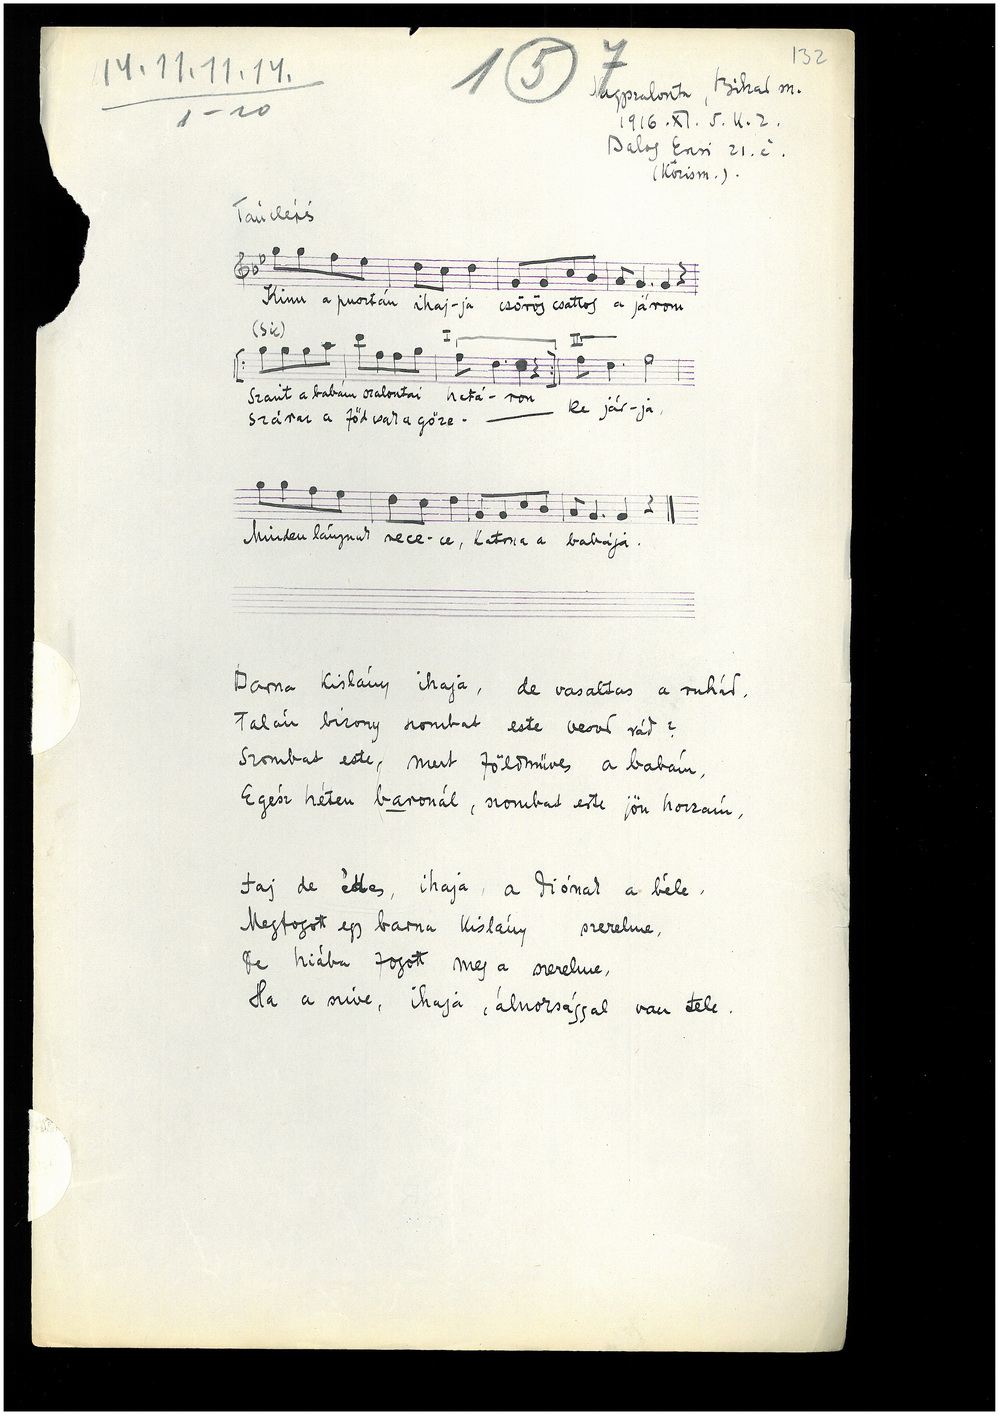 14. 11. 11. 14.
1-20
1 5 7
132
Nagyszalonta, Bihar m.
1916. XI. 5. K. Z.
Balog Erzsi 21. é.
(Közism.).
Tánclépés
Kinn a pusztán ihaj-ja csörög csattog a járom
(Sic)
I II
Szánt a babám szalontai hatá-ron
Száraz a föd csak a gőze- ke jár-ja,
Minden lánynak rece-ce, katona a babája.
Barna kislány ihaja, de vasaltas a ruhád.
Talán bizony szombat este veszed rád?
Szombat este, mert földműves a babám,
Egész héten baronál, szombat este jön hozzám,
Haj de édes, ihaja, a diónak a béle.
Megfogott egy barna kislány szerelme,
De hiába fogott meg a szerelme,
Ha a szíve, ihaja, álnoksággal van tele.